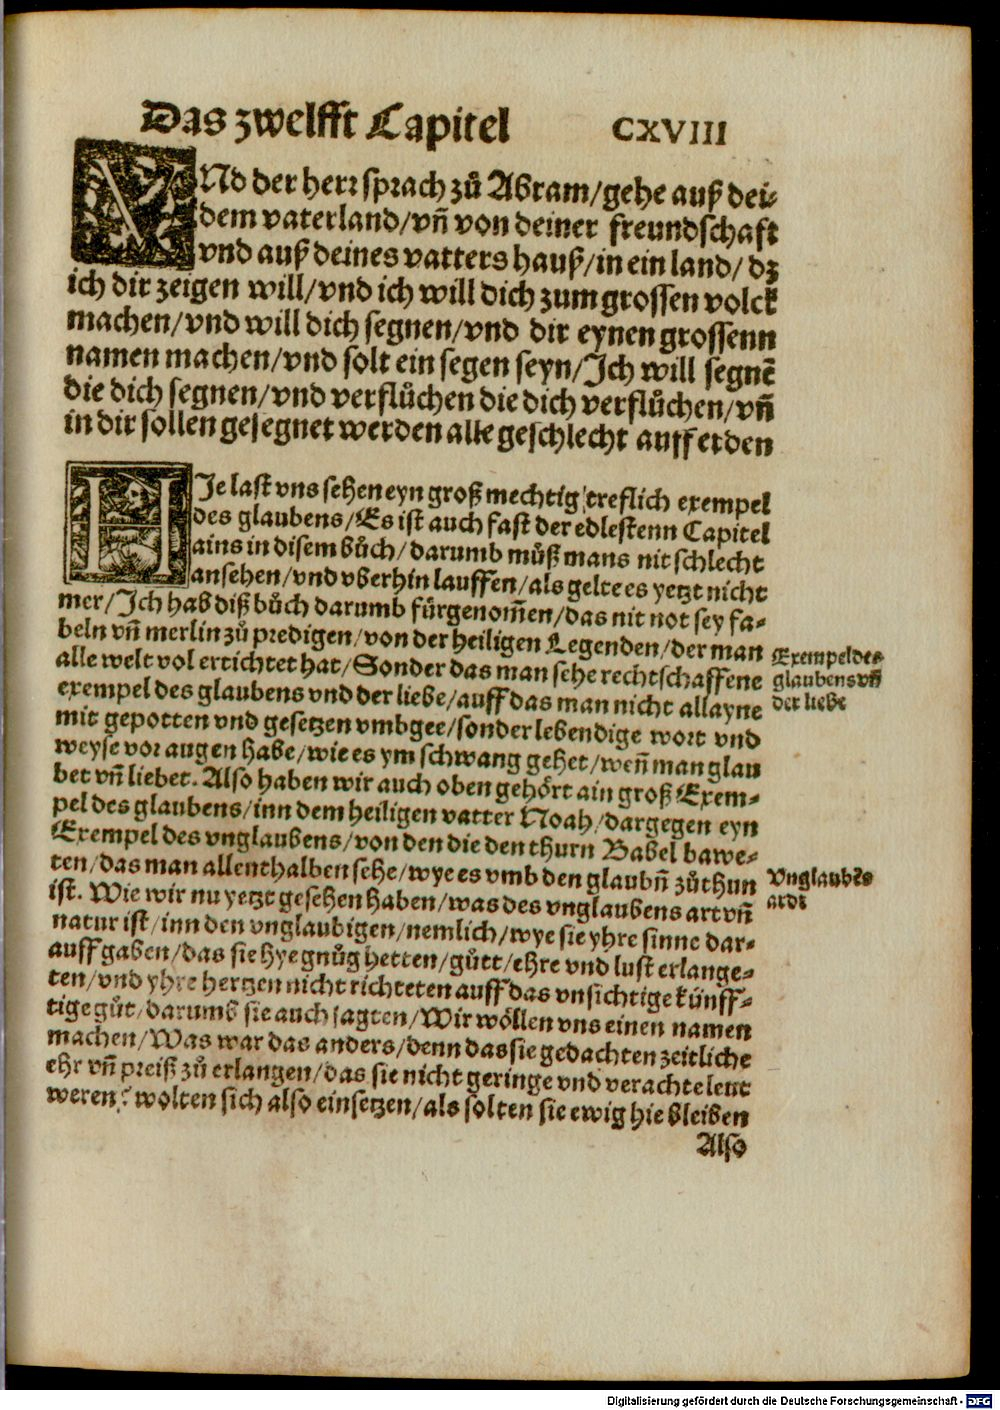 Das zwelfft Capitel CXVIII
VNd der herr sprach zů Abram/gehe auß dei-
dem vaterland/vñ von deiner freundschafft
vnd auß deines vatters hauß/in ein land/dz
ich dir zeigen will/vnd ich will dich zum grossen volck
machen/vnd will dich segnen/vnd dir eynen grossenn
namen machen/vnd solt ein segen seyn/Ich will segnē
die dich segnen/vnd verflůchen die dich verflůchen/vñ
in dir sollen gesegnet werden alle geschlecht auff erden
HIe last vns sehen eyn groß mechtig treflich exempel
des glaubens/Es ist auch fast der edlestenn Capitel
ains in disem bůch/darumb můß mans nit schlecht
ansehen/vnd vberhin lauffen/als gelte es yetzt nicht
mer/Ich hab diß bůch darumb fürgenom̄en/das nit not sey fa-
beln vñ merlin zů predigen/von der heiligen Legenden/der man
alle welt vol ertichtet hat/Sonder das man sehe rechtschaffene
exempel des glaubens vnd der liebe/auff das man nicht allayne
mit gepotten vnd gesetzen vmbgee/sonder lebendige wort vnd
weyse vor augen habe/wie es ym schwang gehet/weñ man glau
bet vñ liebet. Also haben wir auch oben gehört ain groß Exem-
pel des glaubens/inn dem heiligen vatter Noah/dargegen eyn
Exempel des vnglaubens/von den die den thurn Babel bawe-
ten/das man allenthalben sehe/wye es vmb den glaubñ zůthun
ist. Wie wir nu yetzt gesehen haben/was des vnglaubens art vñ
natur ist/inn den vnglaubigen/nemlich/wye sie yhre sinne dar-
auff gaben/das sie hye gnůg hetten/gůtt/ehre vnd lust erlange-
ten/vnd yhre hertzen nicht richteten auff das vnsichtige künff-
tige gůt/darumb sie auch sagten/Wir wöllen vns einen namen
machen/Was war das anders/denn das sie gedachten zeitliche
ehr vñ preiß zů erlangen/das sie nicht geringe vnd verachte leut
weren? wolten sich also einsetzen/als solten sie ewig hie bleiben
Also
Exempel des
glaubens vñ
der liebe
Vnglaubēs
ardt
Digitalisierung gefördert durch die Deutsche Forschungsgemeinschaft - DFG